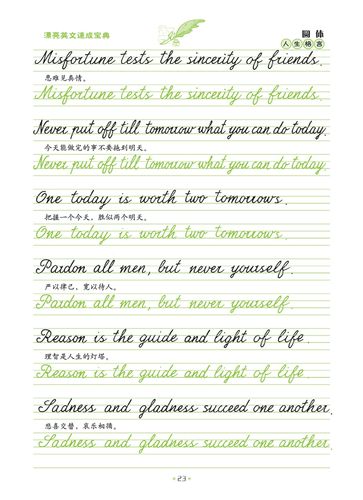 漂亮英文速成宝典
圆体
人生格言
Misfortune tests the sincerity of friends.
患难见真情。
Misfortune tests the sincerity of friends.
Never put off till tomorrow what you can do today.
今天能做完的事不要拖到明天。
Never put off till tomorrow what you can do today.
One today is worth two tomorrows.
把握一个今天，胜似两个明天。
One today is worth two tomorrows.
Pardon all men, but never yourself.
严以律己，宽以待人。
Pardon all men, but never yourself.
Reason is the guide and light of life.
理智是人生的灯塔。
Reason is the guide and light of life.
Sadness and gladness succeed one another.
悲喜交替，哀乐相循。
Sadness and gladness succeed one another.
· 23 ·